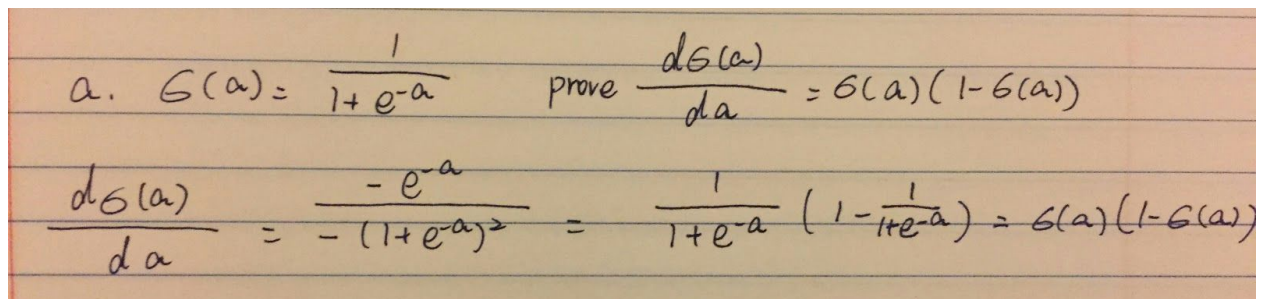 a. σ(a) = 1 / (1 + e^{-a}) prove dσ(a) / da = σ(a)(1 - σ(a))
dσ(a) / da = -e^{-a} / -(1 + e^{-a})^2 = 1 / (1 + e^{-a}) (1 - 1 / (1 + e^{-a})) = σ(a)(1 - σ(a))